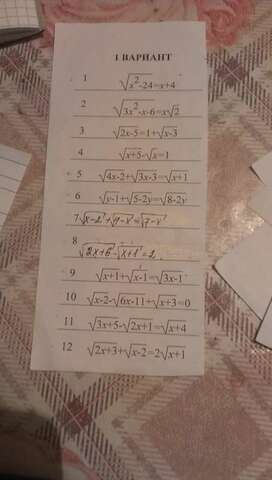 1 ВАРИАНТ
1 √x²-24=x+4
2 √3x²-x-6=x√2
3 √2x-5=1+√x-3
4 √x+5-√x=1
5 √4x-2+√3x-3=√x+1
6 √y-1+√5-2y=√8-2y
7 √x-2+√9-x=√7-x
8 √2x+6-√x+1=2
9 √x+1+√x-1=√3x-1
10 √x-2-√6x-11+√x+3=0
11 √3x+5-√2x+1=√x+4
12 √2x+3+√x-2=2√x+1